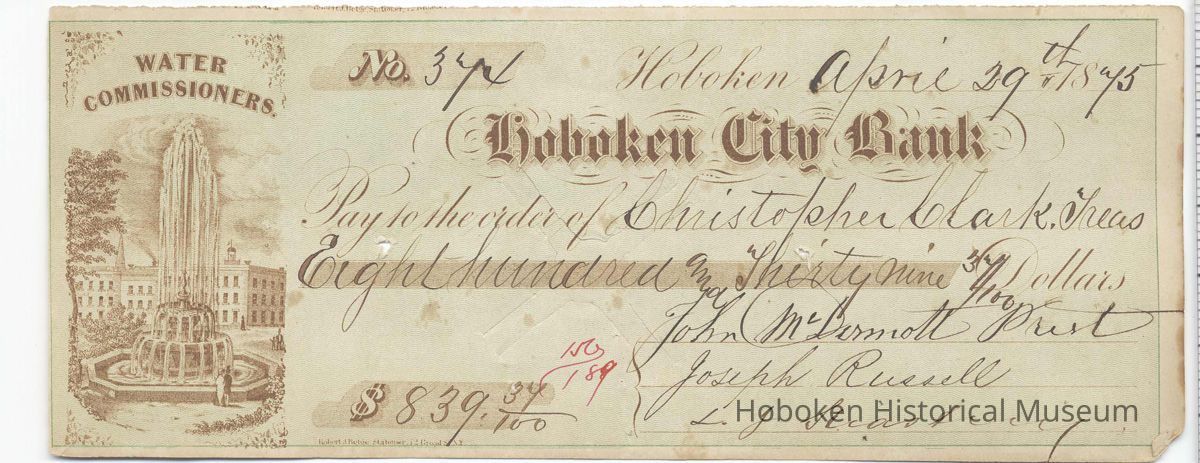 WATER
COMMISSIONERS.
No. 374 Hoboken April 29th 1875
Hoboken City Bank
Pay to the order of Christopher Clark, Treas
Eight hundred and Thirty nine 37/100 Dollars
John McDermott Prest
Joseph Russell
$ 839.37/100
150/189
L. J.
Hoboken Historical Museum
Stationer, 72 Broad St. N.Y.